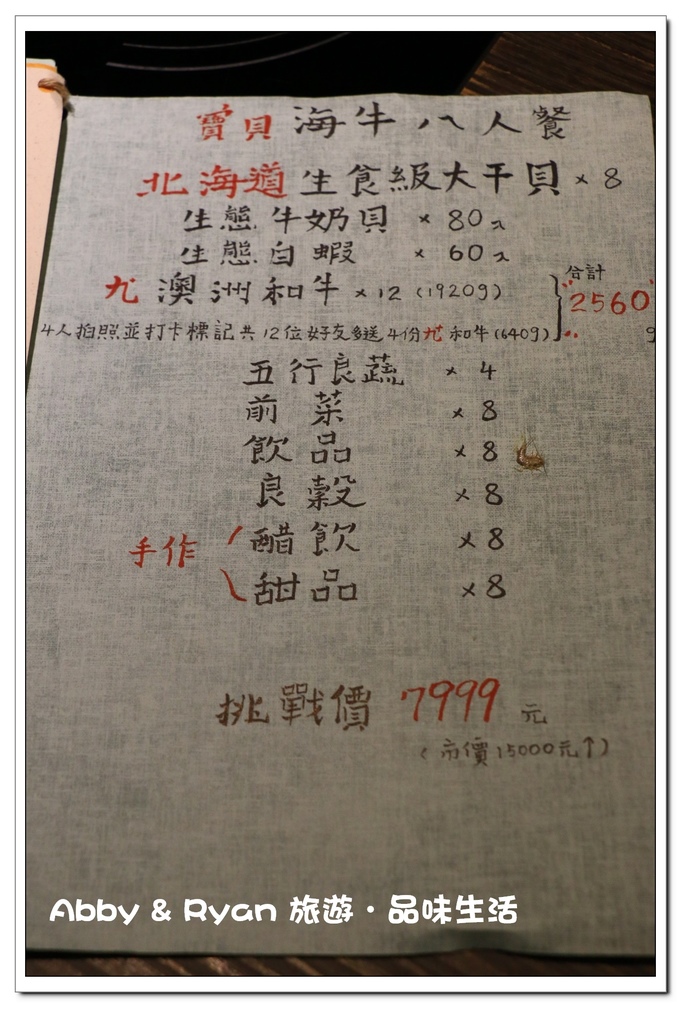 寶貝海牛八人餐
北海道生食級大干貝 × 8
生態牛奶貝 × 80
生態白蝦 × 60
澳洲和牛 × 12 (1920g)
合計
2560
g
4人拍照並打卡標記共12位好友多送4份 和牛(640g)
五行良蔬 × 4
前菜 × 8
飲品 × 8
良穀 × 8
手作
醋飲 × 8
甜品 × 8
挑戰價 7999 元
(市價15000元↑)
Abby & Ryan 旅遊・品味生活